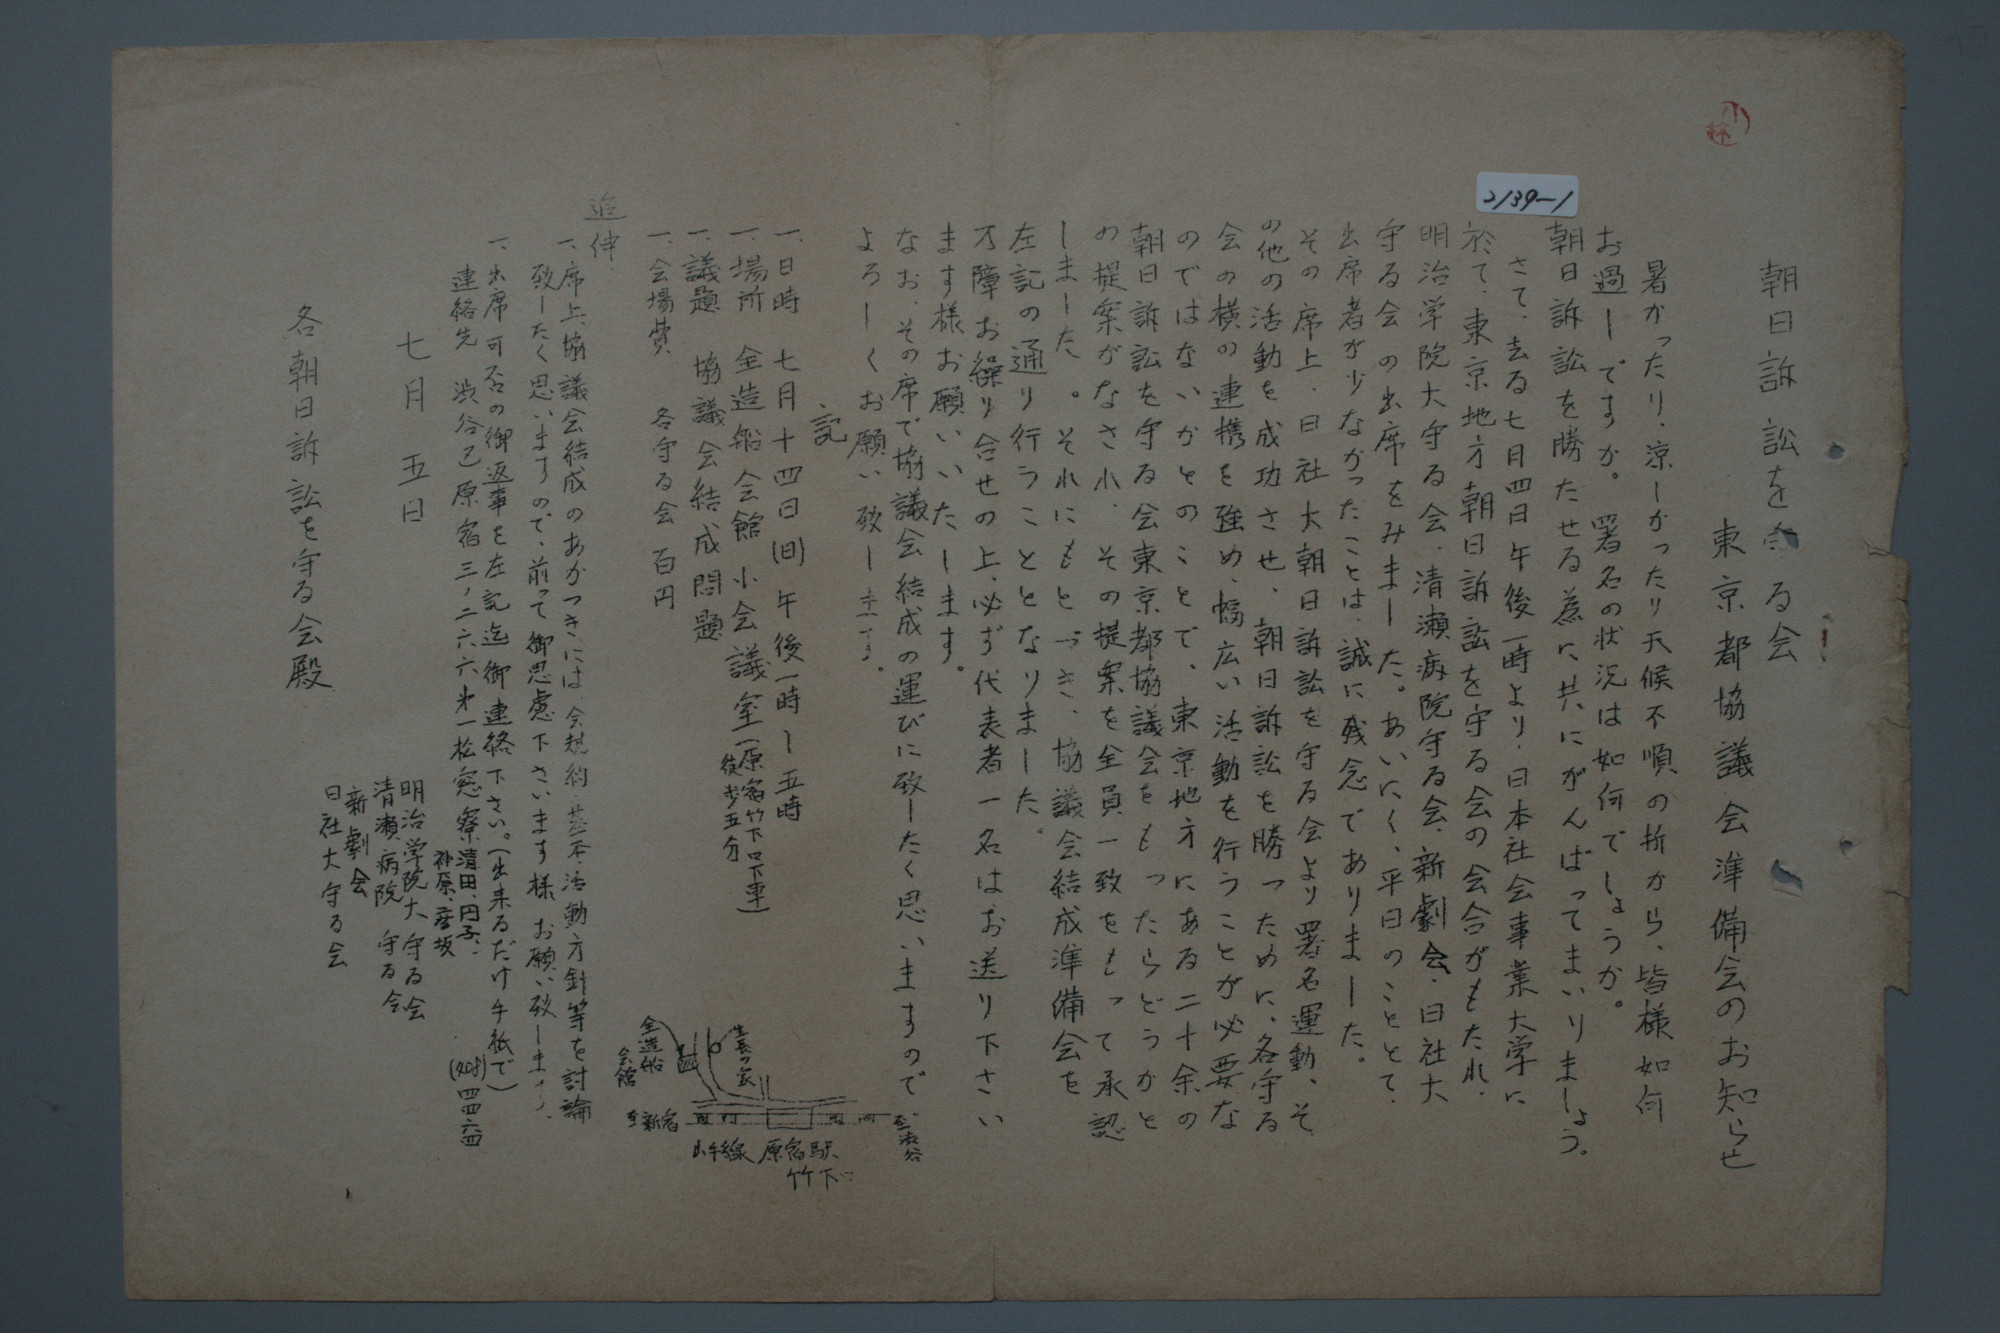 小林
2139-1
朝日訴訟を守る会
東京都協議会準備会のお知らせ
暑かったり、涼しかったり天候不順の折から、皆様如何
お過しですか。署名の状況は如何でしょうか。
朝日訴訟を勝たせる為に共にがんばってまいりましょう。
さて、去る七月四日午後一時より、日本社会事業大学に
於て、東京地方朝日訴訟を守る会の会合がもたれ、
明治学院大守る会、清瀬病院守る会、新劇会、日社大
守る会の出席をみました。あいにく、平日のこととて、
出席者が少なかったことは、誠に残念でありました。
その席上、日社大朝日訴訟を守る会より署名運動、そ
の他の活動を成功させ、朝日訴訟を勝つために、各守る
会の横の連携を強め、幅広い活動を行うことが必要な
のではないかとのことで、東京地方にある二十余の
朝日訴訟を守る会東京都協議会をもったらどうかと
の提案がなされ、その提案を全員一致をもって承認
しました。それにもとづき、協議会結成準備会を
左記の通り行うこととなりました。
万障お繰り合せの上、必ず代表者一名はお送り下さい
ます様お願いいたします。
なお、その席で協議会結成の運びに致したく思いますので
よろしくお願い致します。
記
一、日時 七月十四日(日)午後一時〜五時
一、場所 全造船会館 小会議室(原宿竹下口下車)
徒歩五分
一、議題 協議会結成問題
一、会場費 各守る会 百円
至渋谷
原宿駅
竹下口
山手線
至新宿
生長の家
全造船
会館
追伸
一、席上、協議会結成のあかつきには、会規約、基本活動方針等を討論
致したく思いますので、前って御思慮下さいます様、お願い致します。
一、出席可否の御返事を左記迄御連絡下さい。(出来るだけ手紙で)
連絡先 渋谷区原宿三ノ二六六 第一松窓寮 清田、円子、
神原、彦坂
(408)四四六四
明治学院大守る会
清瀬病院守る会
新劇会
日社大守る会
七月五日
各朝日訴訟を守る会殿